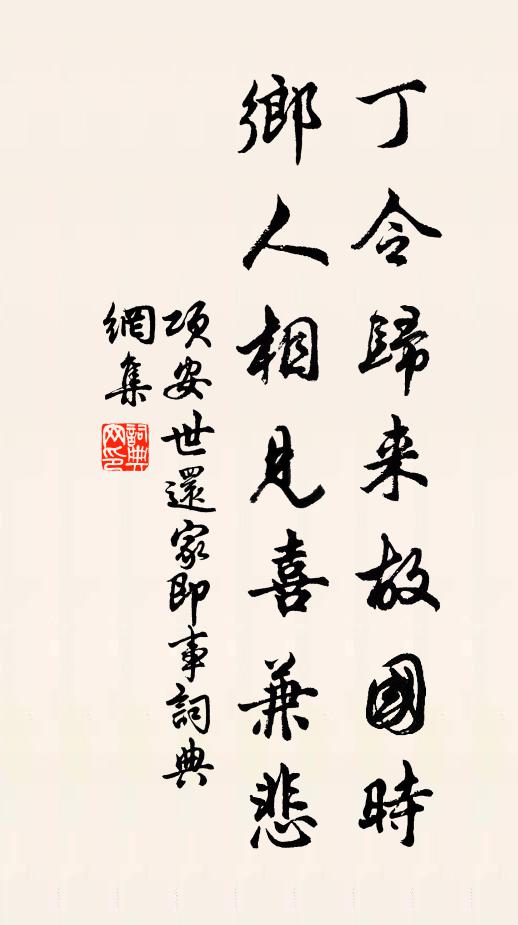 丁令歸来故國時
鄉人相見喜兼悲
項安世還家即事詞典
網集
詞典網印